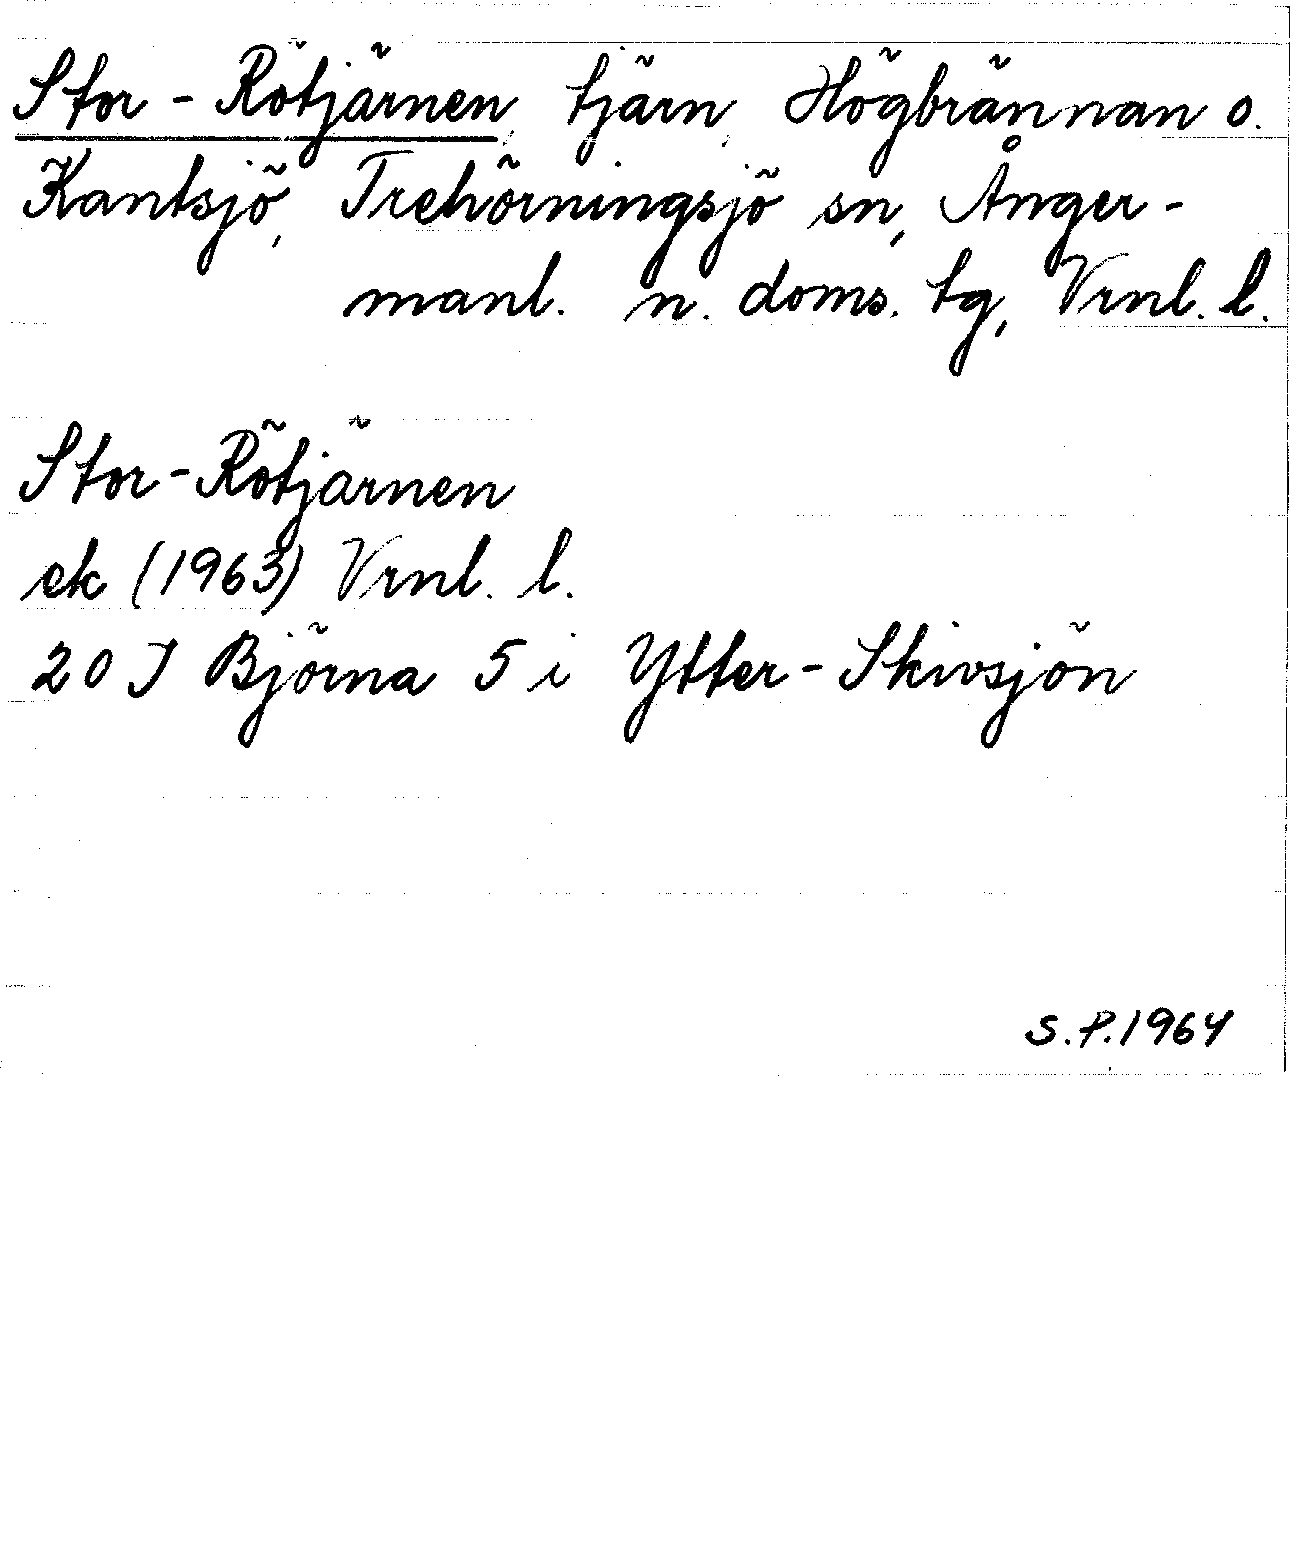 Stor-Rötjärnen, tjärn, Högbrännan o.
Kantsjö, Trehörningsjö sn, Ånger-
manl. n. doms. tg, Vrnl. l.
Stor-Rötjärnen
ek (1963) Vrnl. l.
20 J Björna 5 i Ytter-Skivsjön
S.P.1964